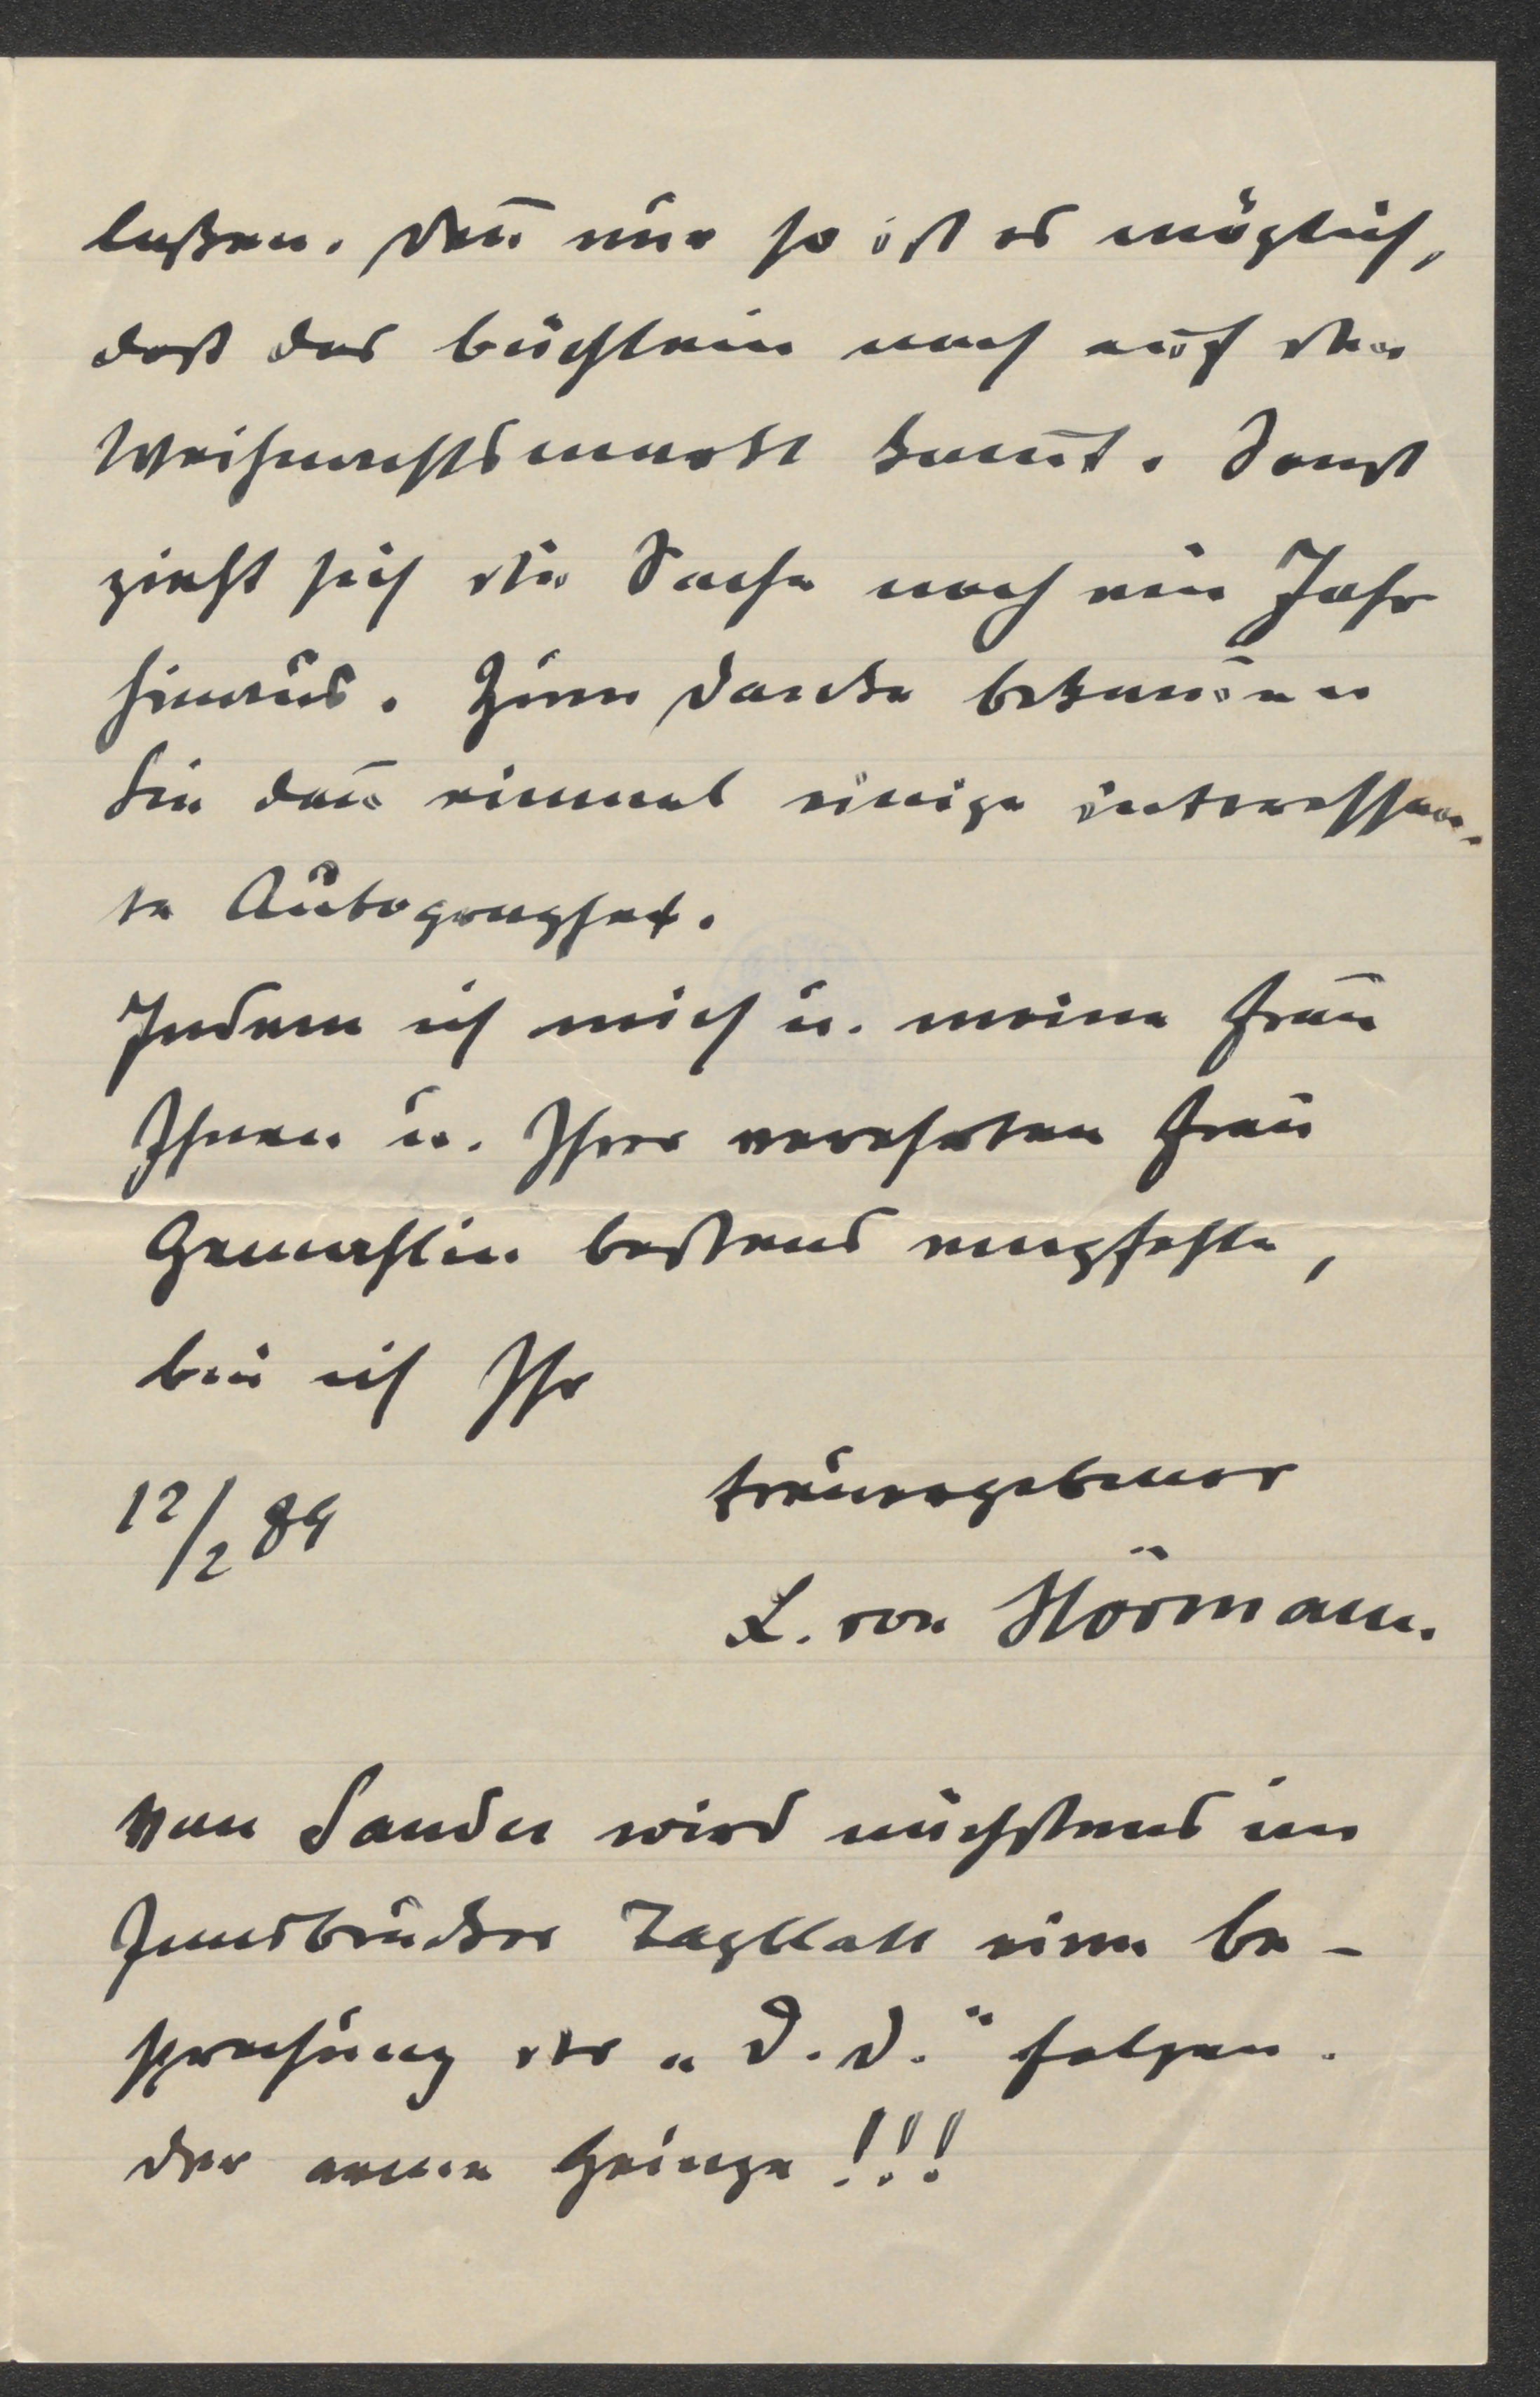 laßen. Deñ nur so ist es möglich,
daß das büchlein noch auf den
Weihnachtsmarkt kom̄t. Sonst
zieht sich die Sache noch ein Jahr
hinaus. Zum Danke bekom̄en
Sie dañ einmal einige interessan-
te Autographen.
Indem ich mich u. meine Frau
Ihnen u. Ihrer verehrten Frau
Gemahlin bestens empfehle,
bin ich Ihr
treuergebener
12/2 89
L. von Hörmann.
Von Sander wird nächstens im
Innsbrucker Tagblatt eine be-
sprechung der „D. D." folgen.
Der arme